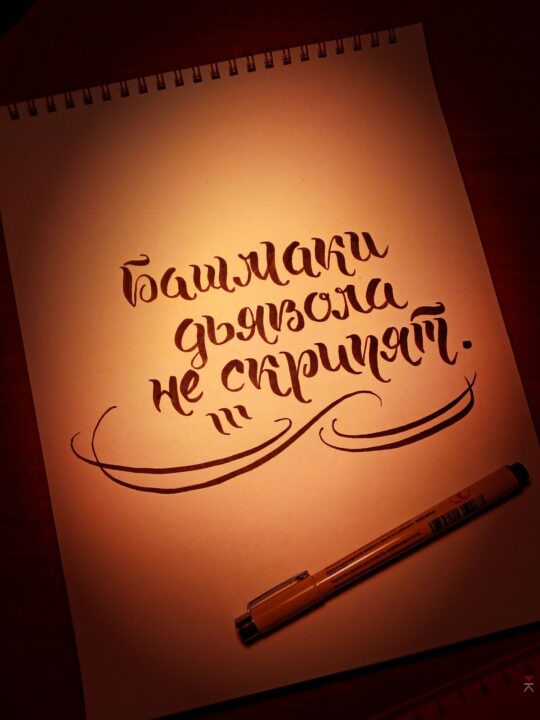 Башмаки
дьявола
не скрипят.
K